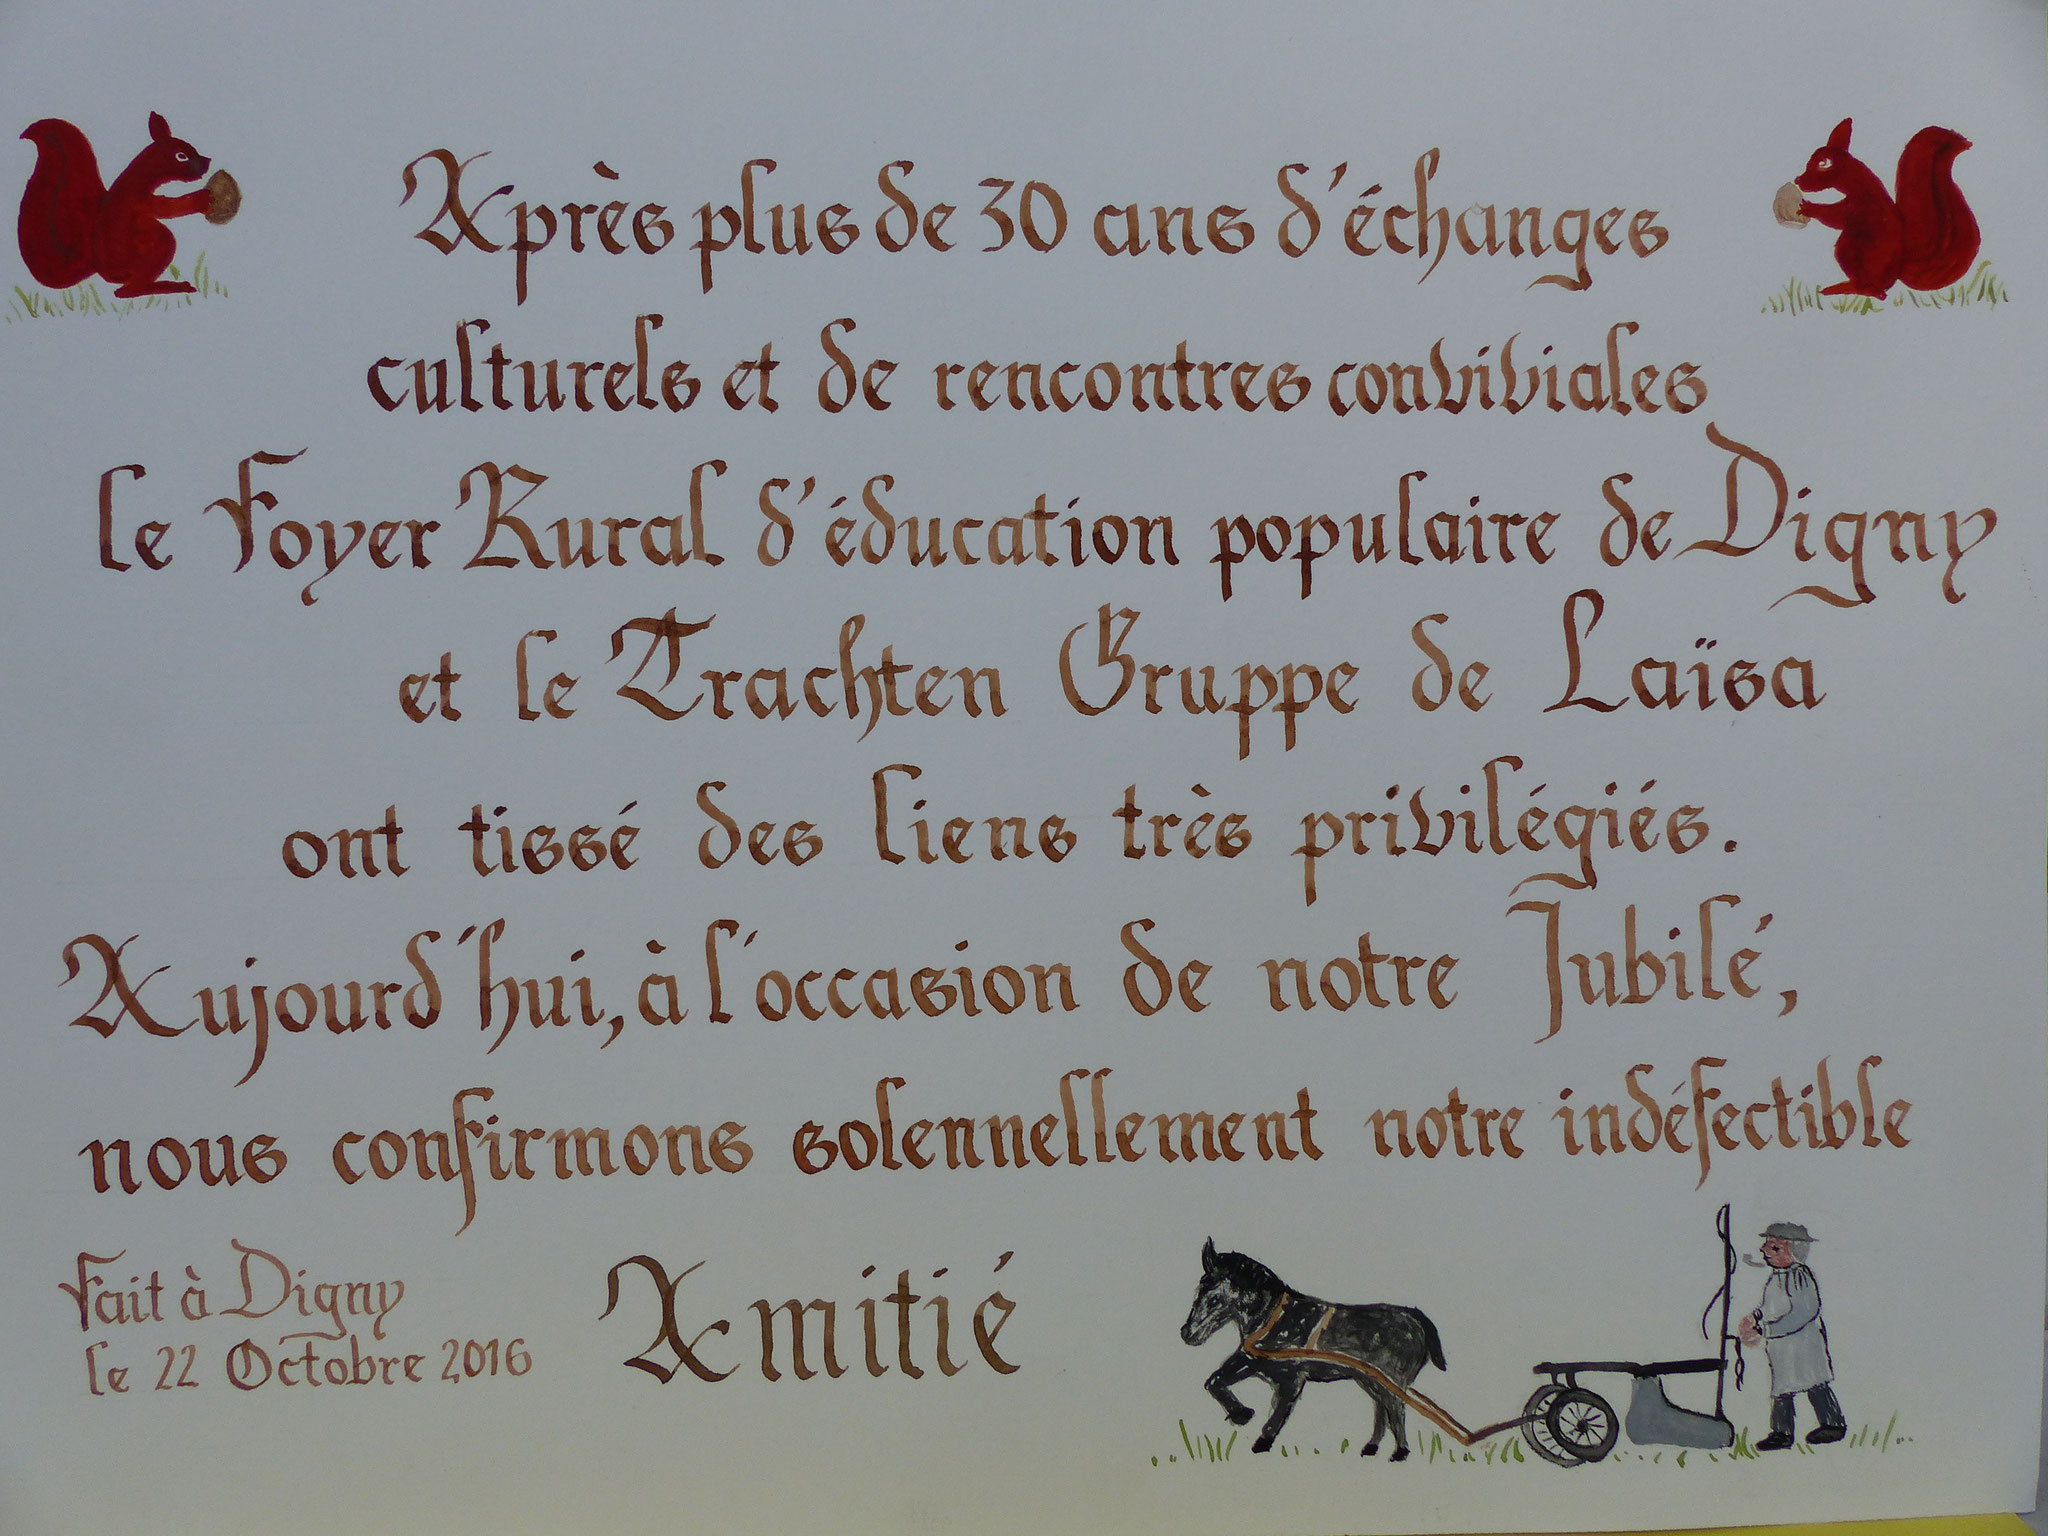 Après plus de 30 ans d'échanges
culturels et de rencontres conviviales
le Foyer Rural d'éducation populaire de Digny
et le Trachten Gruppe de Laïsa
ont tissé des liens très privilégiés.
Aujourd'hui, à l'occasion de notre Jubilé,
nous confirmons solennellement notre indéfectible
Amitié
Fait à Digny
le 22 Octobre 2016